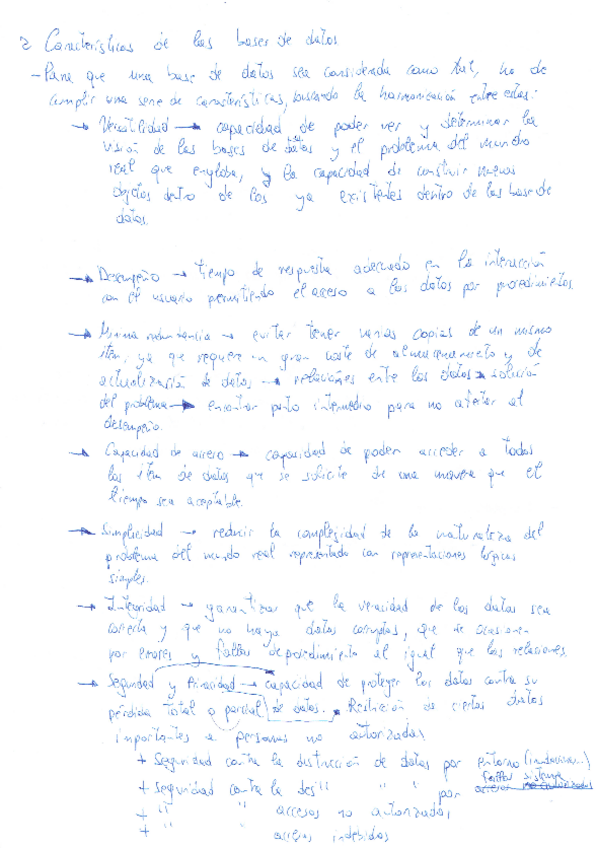 2 Características de las bases de datos
- Para que una base de datos sea considerada como tal, ha de
cumplir una serie de características, buscando la harmonización entre estas:
→ Versatilidad → capacidad de poder ver y determinar la
visión de las bases de datos y el problema del mundo
real que engloba, y la capacidad de construir nuevos
objetos dentro de los ya existentes dentro de las base de
datos.
→ Desempeño → tiempo de respuesta adecuado en la interacción
con el usuario permitiendo el acceso a los datos por procedimientos.
→ Mínima redundancia → evitar tener varias copias de un mismo
ítem, ya que requiere un gran coste de almacenamiento y de
actualización de datos → relaciones entre los datos → solución
del problema → encontrar punto intermedio para no afectar al
desempeño.
→ Capacidad de acceso → capacidad de poder acceder a todos
los ítem de datos que se solicite de una manera que el
tiempo sea aceptable.
→ Simplicidad → reducir la complejidad de la naturaleza del
problema del mundo real representado con representaciones lógicas
simples.
→ Integridad → garantizar que la veracidad de los datos sea
correcta y que no haya datos corruptos, que se ocasionen
por errores y fallos de procedimiento al igual que las relaciones.
→ Seguridad y Privacidad → capacidad de proteger los datos contra su
pérdida total o parcial de datos. Restricción de ciertos datos
importantes a personas no autorizadas
+ Seguridad contra la destrucción de datos por entorno
+ seguridad contra la des" " " por fallos sistema
+ " " accesos no autorizados
+ " " accesos indebidos